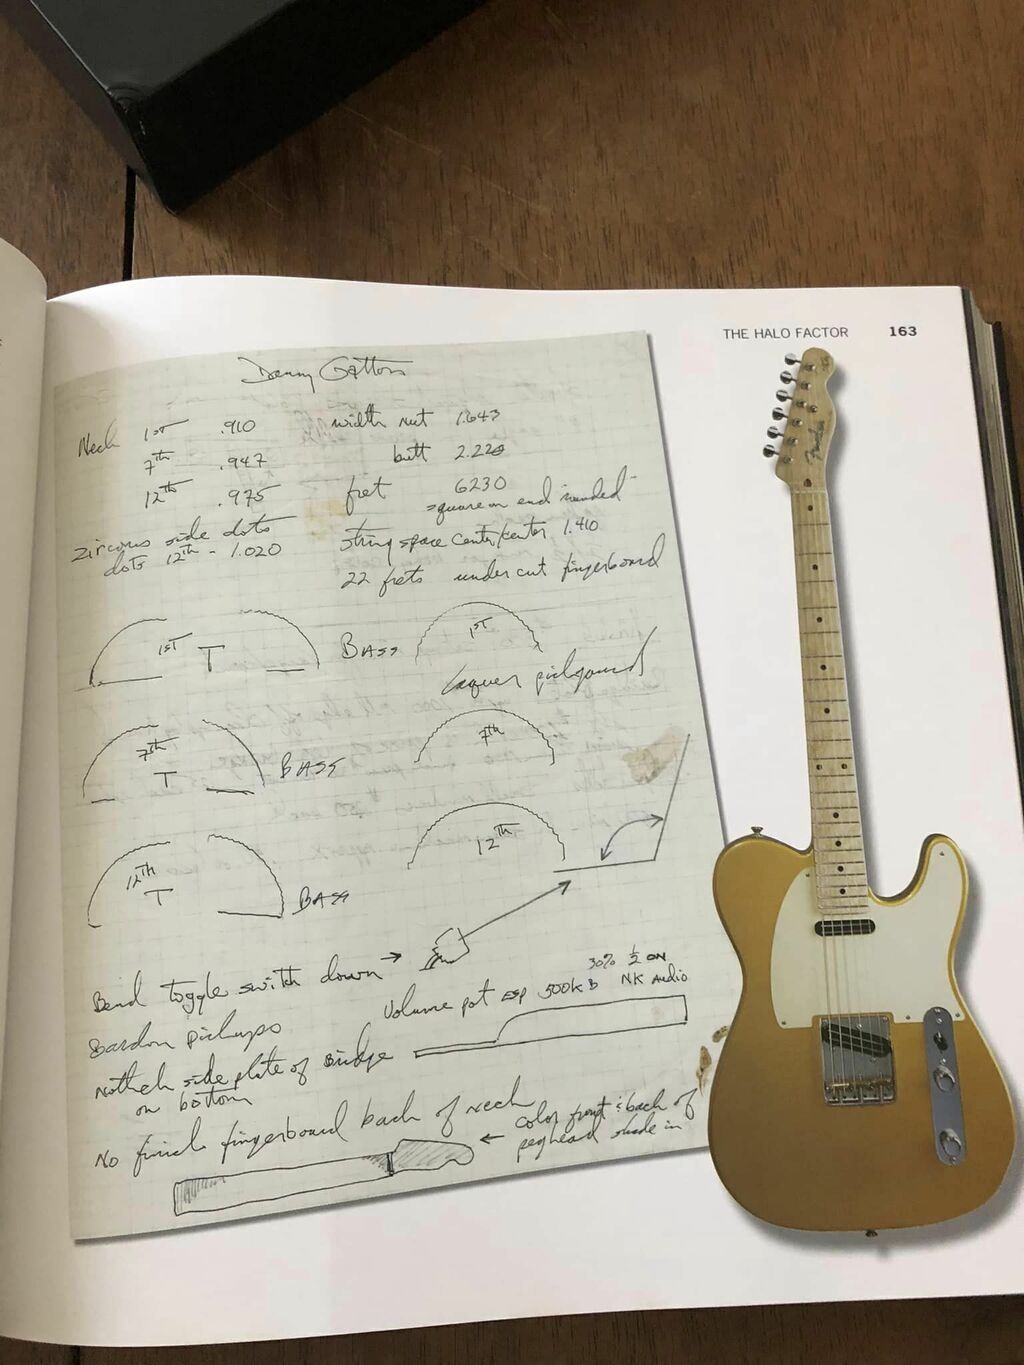 THE HALO FACTOR 163
Danny Gatton
Neck 1st .910 width nut 1.643
7th .947 butt 2.220
12th .975 fret 6230
square on end "rounded"
zircons side dots string space center/center 1.410
dots 12th - 1.020
22 frets undercut fingerboard
1st T BASS 1st
Laquer pickguard
7th T BASS 7th
12th T BASS 12th
Bend toggle switch down →
30% ½ ON
Volume pot ESP 500K B NK Audio
Bardon pickups
Notch side plate of Bridge
on bottom
No finish fingerboard back of neck
← color front & back of
peghead shade in
Fender